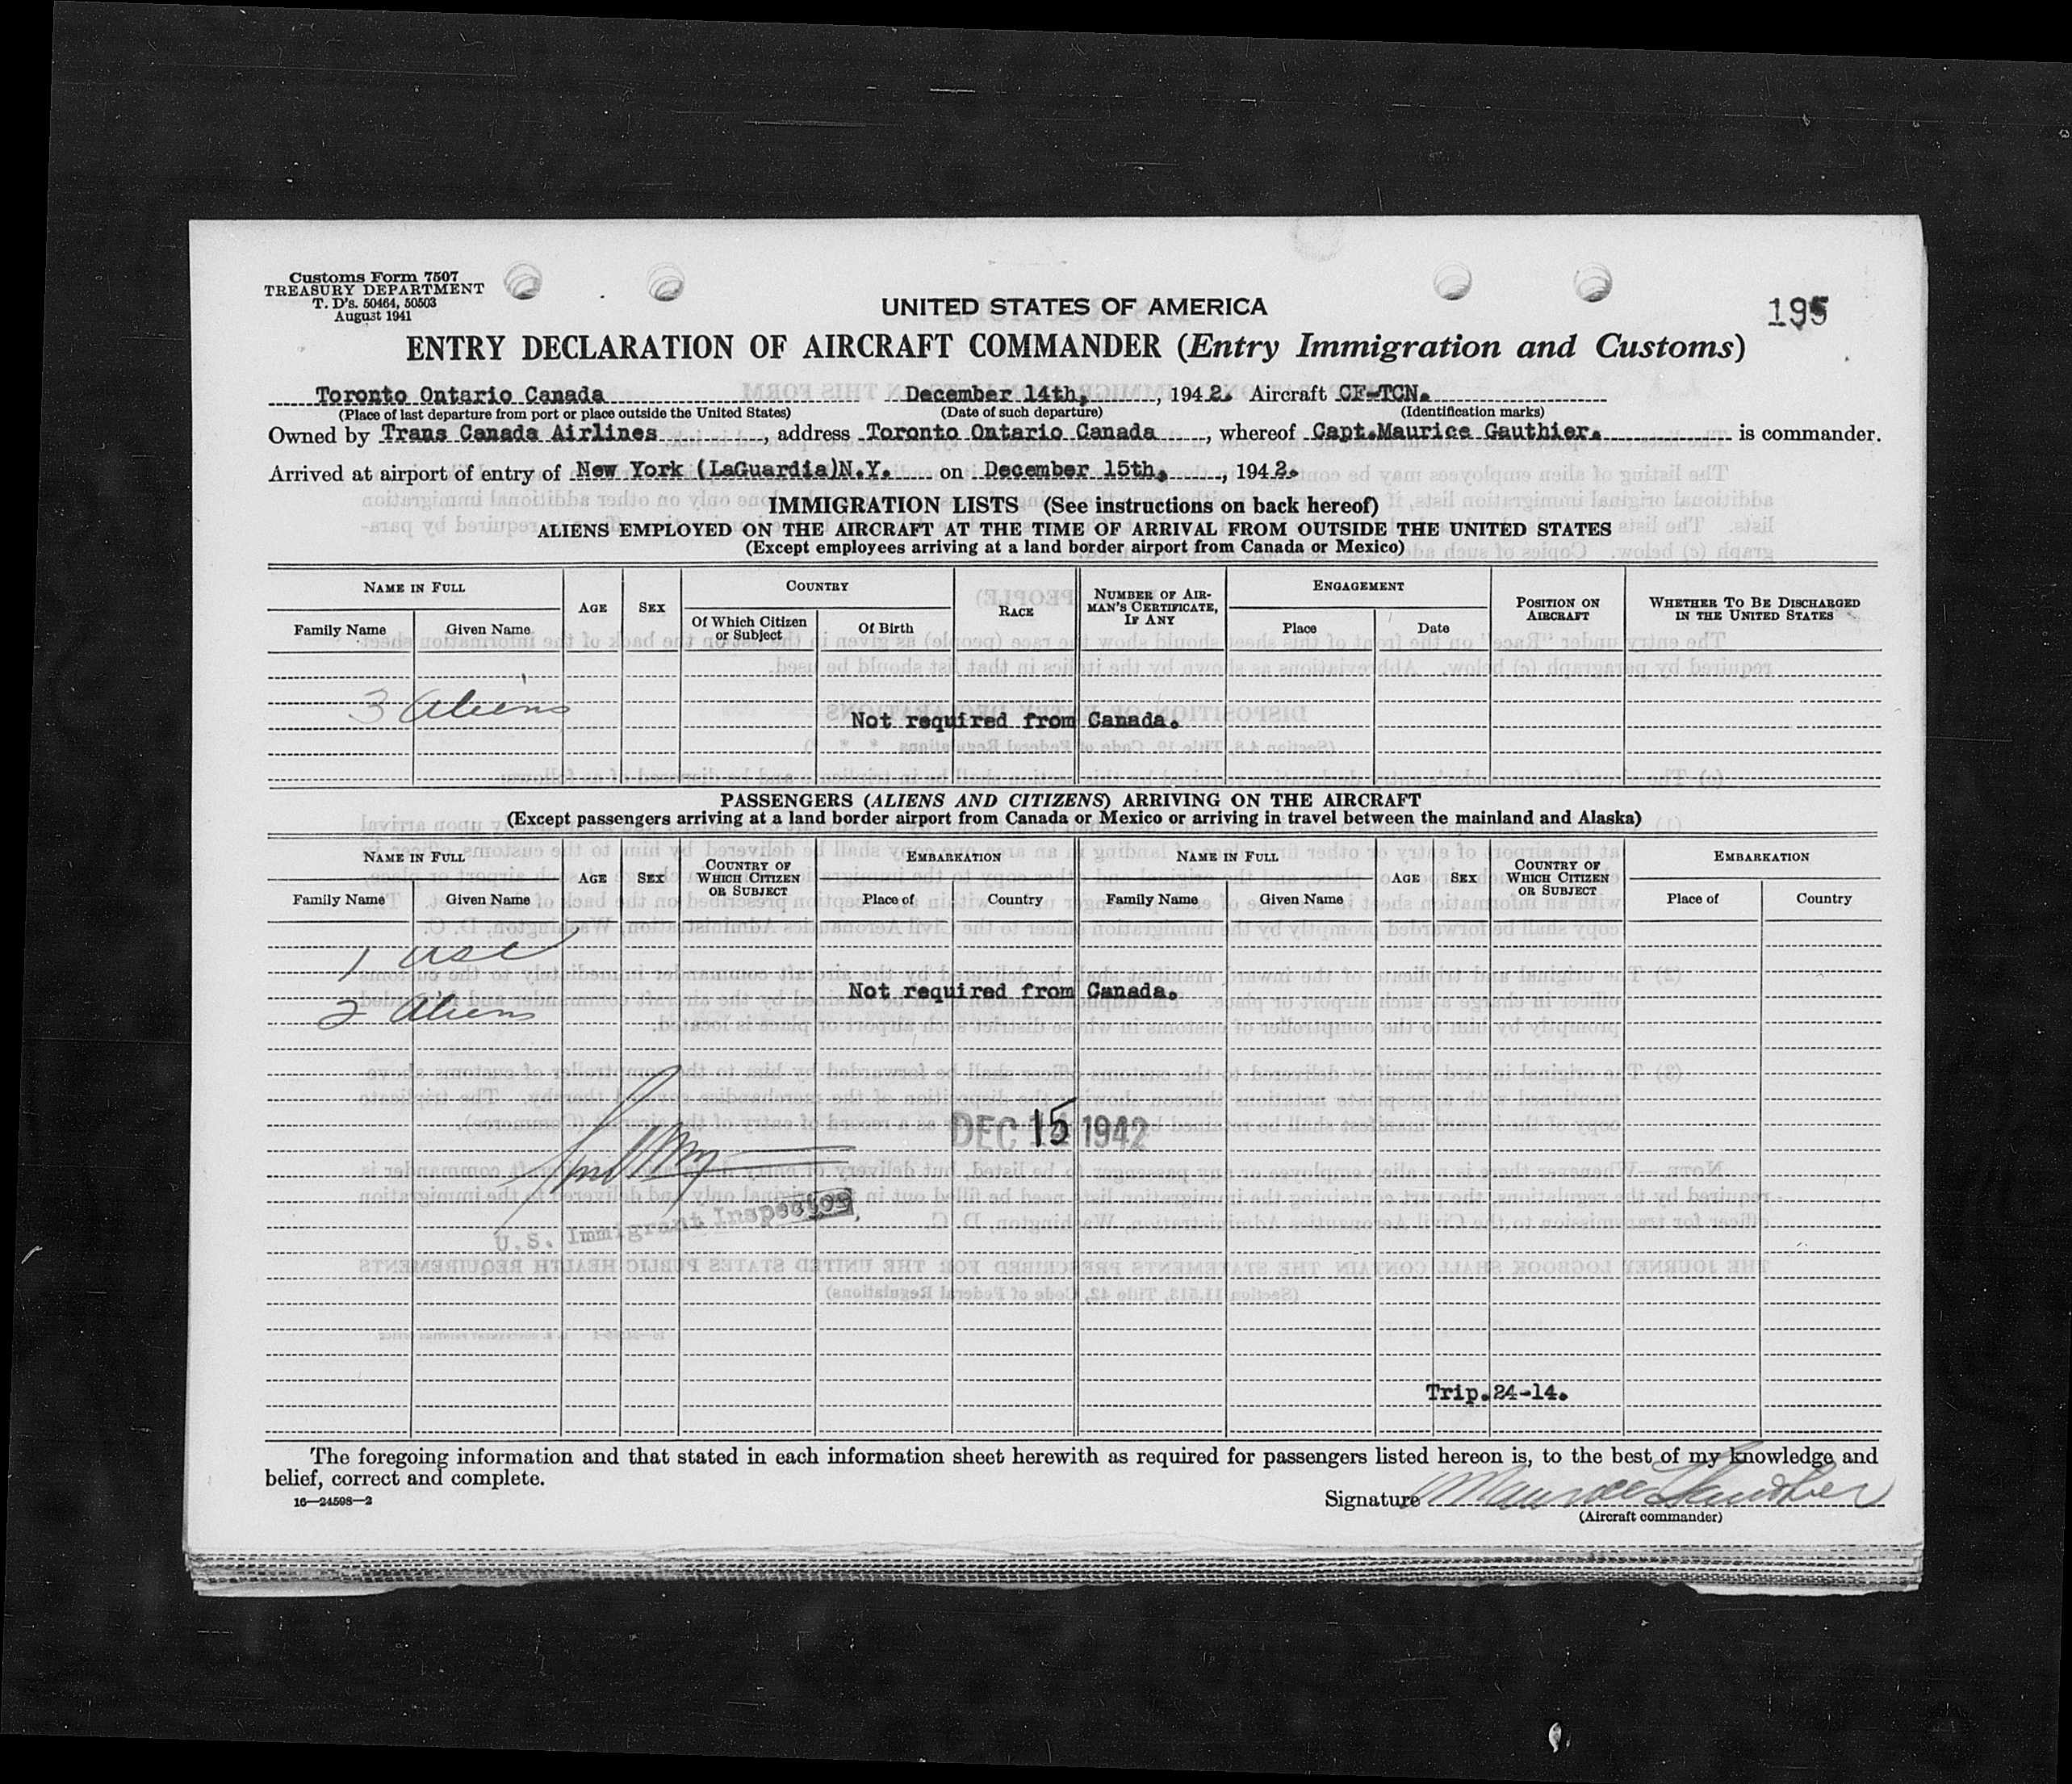 Customs Form 7507
TREASURY DEPARTMENT
T. D's. 50464, 50503
August 1941
UNITED STATES OF AMERICA
195
ENTRY DECLARATION OF AIRCRAFT COMMANDER (Entry Immigration and Customs)
Toronto Ontario Canada December 14th, , 1942. Aircraft CF-TCN.
(Place of last departure from port or place outside the United States) (Date of such departure) (Identification marks)
Owned by Trans Canada Airlines , address Toronto Ontario Canada , whereof Capt.Maurice Gauthier. is commander.
Arrived at airport of entry of New York (LaGuardia)N.Y. on December 15th, , 1942.
IMMIGRATION LISTS (See instructions on back hereof)
ALIENS EMPLOYED ON THE AIRCRAFT AT THE TIME OF ARRIVAL FROM OUTSIDE THE UNITED STATES
(Except employees arriving at a land border airport from Canada or Mexico)
NAME IN FULL AGE SEX COUNTRY RACE NUMBER OF AIR-MAN'S CERTIFICATE, IF ANY ENGAGEMENT POSITION ON AIRCRAFT WHETHER TO BE DISCHARGED IN THE UNITED STATES
Family Name Given Name Of Which Citizen or Subject Of Birth Place Date
3 Aliens
Not required from Canada.
PASSENGERS (ALIENS AND CITIZENS) ARRIVING ON THE AIRCRAFT
(Except passengers arriving at a land border airport from Canada or Mexico or arriving in travel between the mainland and Alaska)
NAME IN FULL AGE SEX COUNTRY OF WHICH CITIZEN OR SUBJECT EMBARKATION NAME IN FULL AGE SEX COUNTRY OF WHICH CITIZEN OR SUBJECT EMBARKATION
Family Name Given Name Place of Country Family Name Given Name Place of Country
1 USC
2 Aliens
Not required from Canada.
DEC 15 1942
U.S. Immigrant Inspector
Trip.24-14.
The foregoing information and that stated in each information sheet herewith as required for passengers listed hereon is, to the best of my knowledge and
belief, correct and complete.
16—24598—2
Signature Maurice Gauthier
(Aircraft commander)